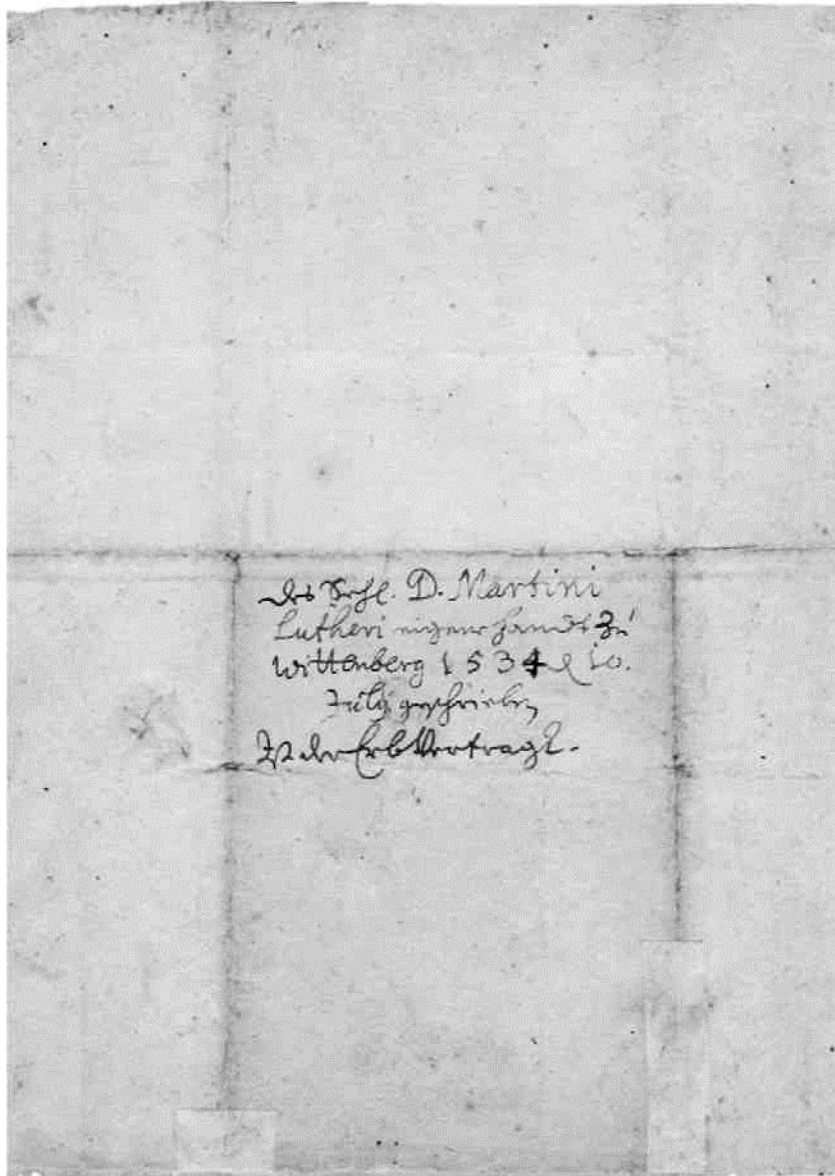 des Sehl. D. Martini
Lutheri eigene handt zu
Wittenberg 1534 10.
July geschrieben
der Erb Vertragk.